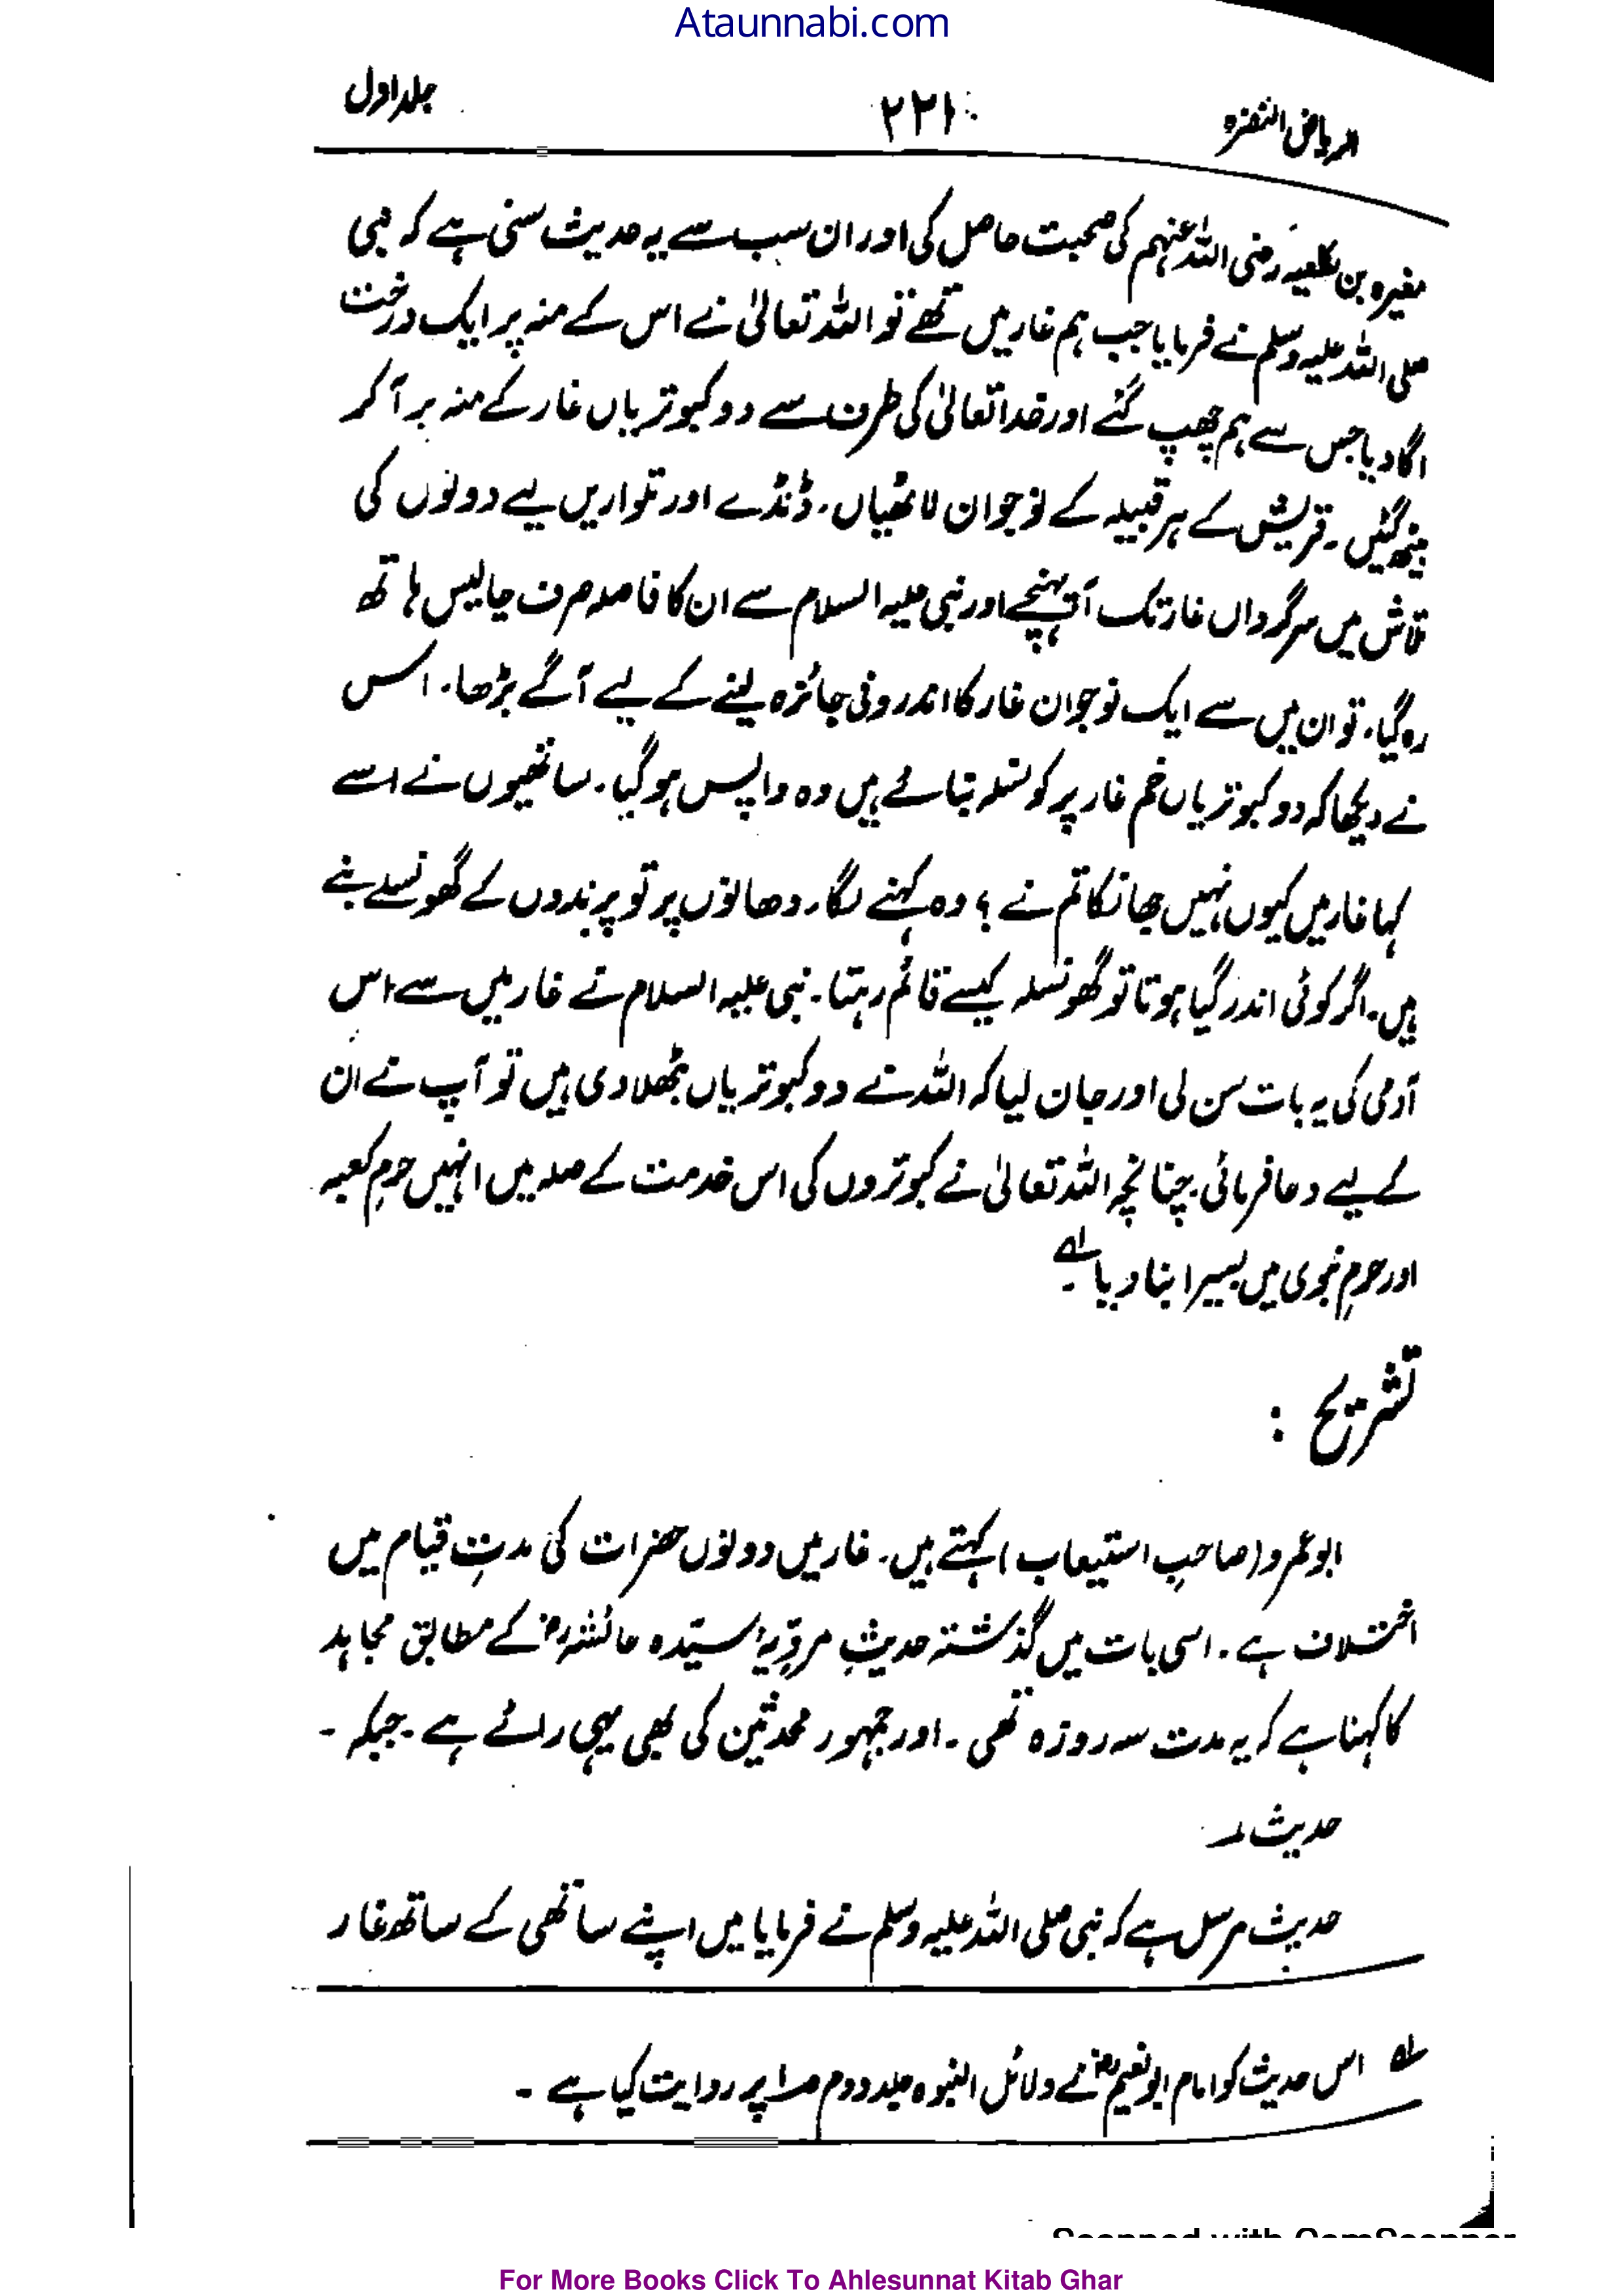 Ataunnabi.com
الریاض النضرہ ۲۲۱ جلد اول
مغیرہ بن رضی اللہ عنہم کی صحبت حاصل کی اور ان سب سے یہ حدیث سنی ہے کہ نبی
صلی اللہ علیہ وسلم نے فرمایا جب ہم غار میں تھے تو اللہ تعالیٰ نے اس کے منہ پر ایک درخت
اگا دیا جس سے ہم چھپ گئے اور خدا تعالیٰ کی طرف سے دو کبوتریاں غار کے منہ پر آ کر
بیٹھ گئیں۔ قریش کے ہر قبیلہ کے نوجوان لاٹھیاں، ڈنڈے اور تلواریں لیے دونوں کی
تلاش میں سرگرداں غار تک آ پہنچے اور نبی علیہ السلام سے ان کا فاصلہ صرف چالیس ہاتھ
رہ گیا، تو ان میں سے ایک نوجوان غار کا اندرونی جائزہ لینے کے لیے آگے بڑھا۔ اس
نے دیکھا کہ دو کبوتریاں فم غار پر گھونسلہ بنائے ہیں وہ واپس ہو گیا۔ ساتھیوں نے اسے
کہا غار میں کیوں نہیں جھانکا تم نے؟ وہ کہنے لگا۔ دھانوں پر تو پرندوں کے گھونسلے بنے
ہیں۔ اگر کوئی اندر گیا ہوتا تو گھونسلہ کیسے قائم رہتا۔ نبی علیہ السلام نے غار میں سے اس
آدمی کی یہ بات سن لی اور جان لیا کہ اللہ نے دو کبوتریاں بٹھلا دی ہیں تو آپ نے ان
کے لیے دعا فرمائی۔ چنانچہ اللہ تعالیٰ نے کبوتروں کی اس خدمت کے صلہ میں انہیں حرمِ کعبہ
اور حرمِ نبوی میں بسیرا بنا دیا۔ لے
تشریح :
ابو عمرو (صاحبِ استیعاب) کہتے ہیں۔ غار میں دونوں حضرات کی مدتِ قیام میں
اختلاف ہے۔ اسی بات میں گذشتہ حدیثِ مرویّہ سیّدہ عائشہ رض کے مطابق مجاہد
کا کہنا ہے کہ یہ مدت سہ روزہ تھی۔ اور جمہور محدثین کی بھی یہی رائے ہے۔ جبکہ۔
حدیث
حدیث مرسل ہے کہ نبی صلی اللہ علیہ وسلم نے فرمایا میں اپنے ساتھی کے ساتھ غار
لے اس حدیث کو امام ابو نعیم نے دلائل النبوہ جلد دوم پر روایت کیا ہے۔
Scanned with CamScanner
For More Books Click To Ahlesunnat Kitab Ghar